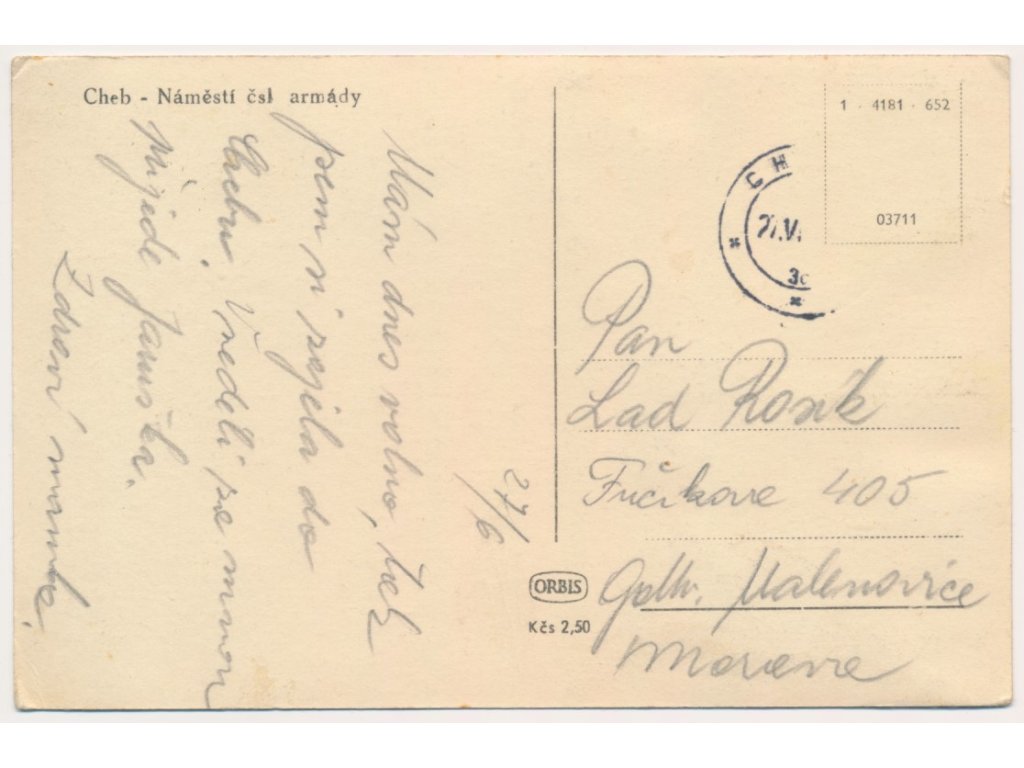 Cheb - Náměstí čsl armády
27/6
Mám dnes volno, tak
jsem si zajela do
Chebu. V neděli se mnou
přijede Jaruška.
Zdraví
1 · 4181 · 652
03711
CH
27.VI
ORBIS
Kčs 2,50
Pan
Lad Rosík
Fučíkova 405
Gottw. Malenovice
Morava